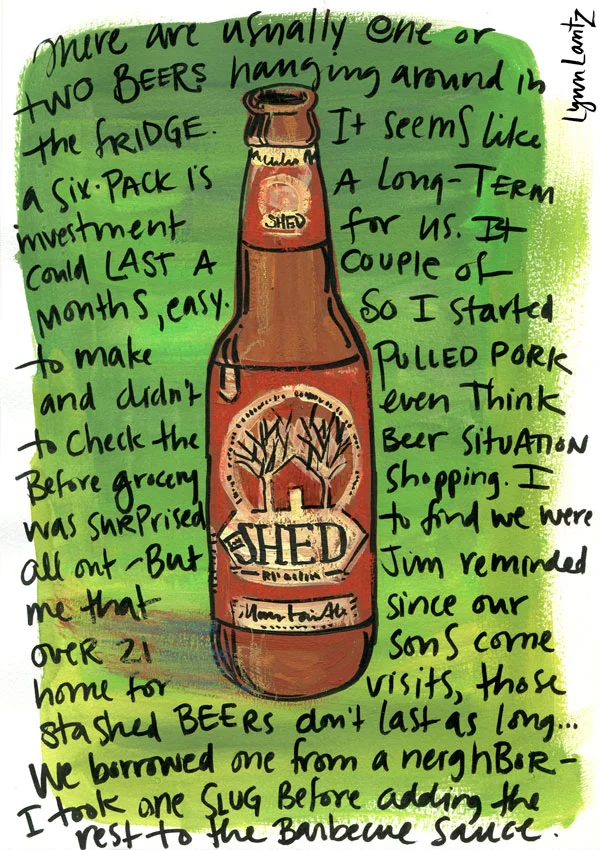 There are usually one or
TWO BEERS hanging around in
the fRIDGE. It seems like
a six-PACK is A Long-TERM
investment for us. It
could LAST A couple of
MONTHS, easy. SO I started
to make PULLED PORK
and didn't even Think
to check the Beer SITUATION
Before grocery shopping. I
was suRPRised to find we were
all out - But Jim reminded
me that since our
oveR 21 sons come
home for visits, those
stashed BEERs don't last as long...
We borrowed one from a neighBoR-
I took one SLUG Before adding the
rest to the Barbecue sauce.
Lynn Lantz
SHED
THE SHED
Mountain Ale